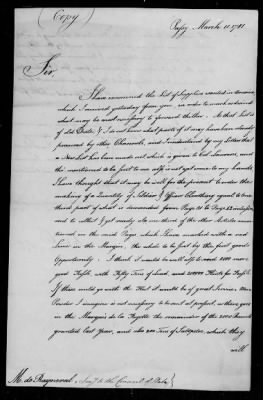 (Copy)
Passy March 11. 1781
Sir,
I have examined the List of Supplies wanted in America,
which I received yesterday from you, in order to mark what
may be most necessary to forward thither. As that List is
of old Date, & I do not know what parts of it may have been already
procured by other Channels, and I understand by my Letter that
a New List has been made out which is given to Col. Laurens, and
tho' mentioned to be sent to me also is not yet come to my hands,
I have thought that it may be well for the present to order the
making of a Quantity of Soldiers & Officers Cloathing equal to one
third part of what is mentioned from Page 31 to Page 42 inclusive
and to collect & get ready also one third of the other Articles men-
tioned in the said Page which I have marked with a red
Line in the Margin, the whole to be sent by the first good
Opportunity. I think it would be well also to send 2000 more
good Fusils, with Fifty Tons of Lead, and 200000 Flints for Fusils.
If these could go with the Fleet it would be of great Service. More
Powder I imagine is not necessary to be sent at present, as there goes
in the Marquis de la Fayette the remainder of the 2000 Barrels
granted last Year, and also 200 Tons of Saltpetre, which they
will
M. de Rayneval, Secy to the Council of State